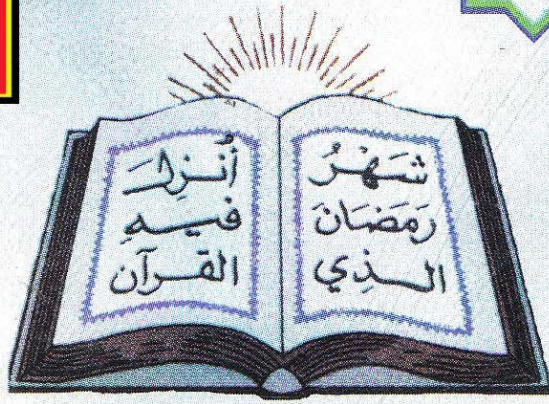 شَهْرُ
رَمَضَانَ
الَّذِي
أُنْزِلَ
فيهِ
القرآن